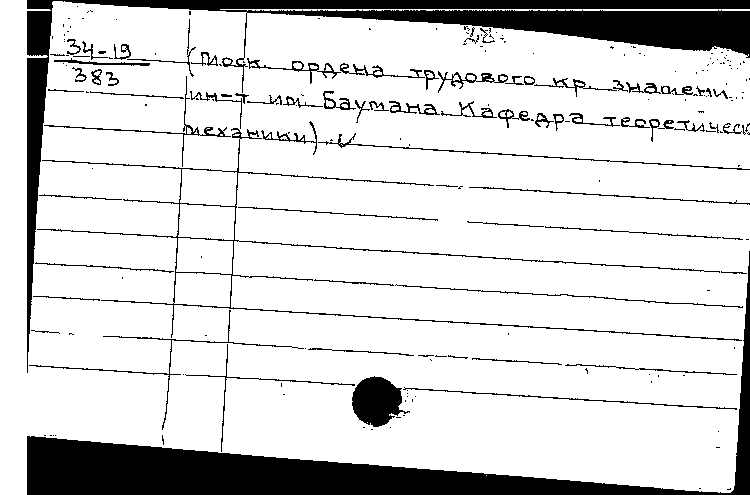 28
34-19
383
(Моск. ордена трудового кр. знамени
ин-т им. Баумана. Кафедра теоретическ
механики).